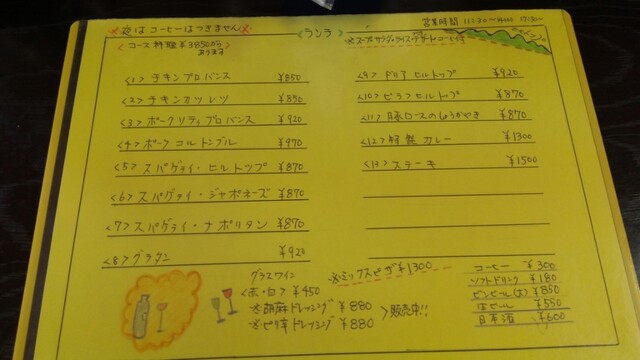 ※夜はコーヒーはつきません※
<ランチ>
営業時間 11:30~ 17:30~
<コース料理 ¥3850から
あります
※スープ・サラダ・ライス・デザート・コーヒー付
ヒルトップ
<1> チキンプロバンス ¥850
<2> チキンカツレツ ¥850
<3> ポークソティプロバンス ¥920
<4> ポークコルドンブル ¥970
<5> スパゲティ・ヒルトップ ¥870
<6> スパゲティ・ジャポネーズ ¥870
<7> スパゲティ・ナポリタン ¥870
<8> グラタン ¥920
<9> ドリアヒルトップ ¥920
<10> ピラフヒルトップ ¥870
<11> 豚ロースのしょうがやき ¥870
<12> 特製カレー ¥1300
<13> ステーキ ¥1500
グラスワイン
<赤・白> ¥450
※胡麻ドレッシング ¥880
※ピリ辛ドレッシング ¥880
>販売中!!
※ミックスピザ ¥1300
コーヒー ¥300
ソフトドリンク ¥180
ビンビール(大) ¥850
生ビール ¥550
日本酒 ¥600